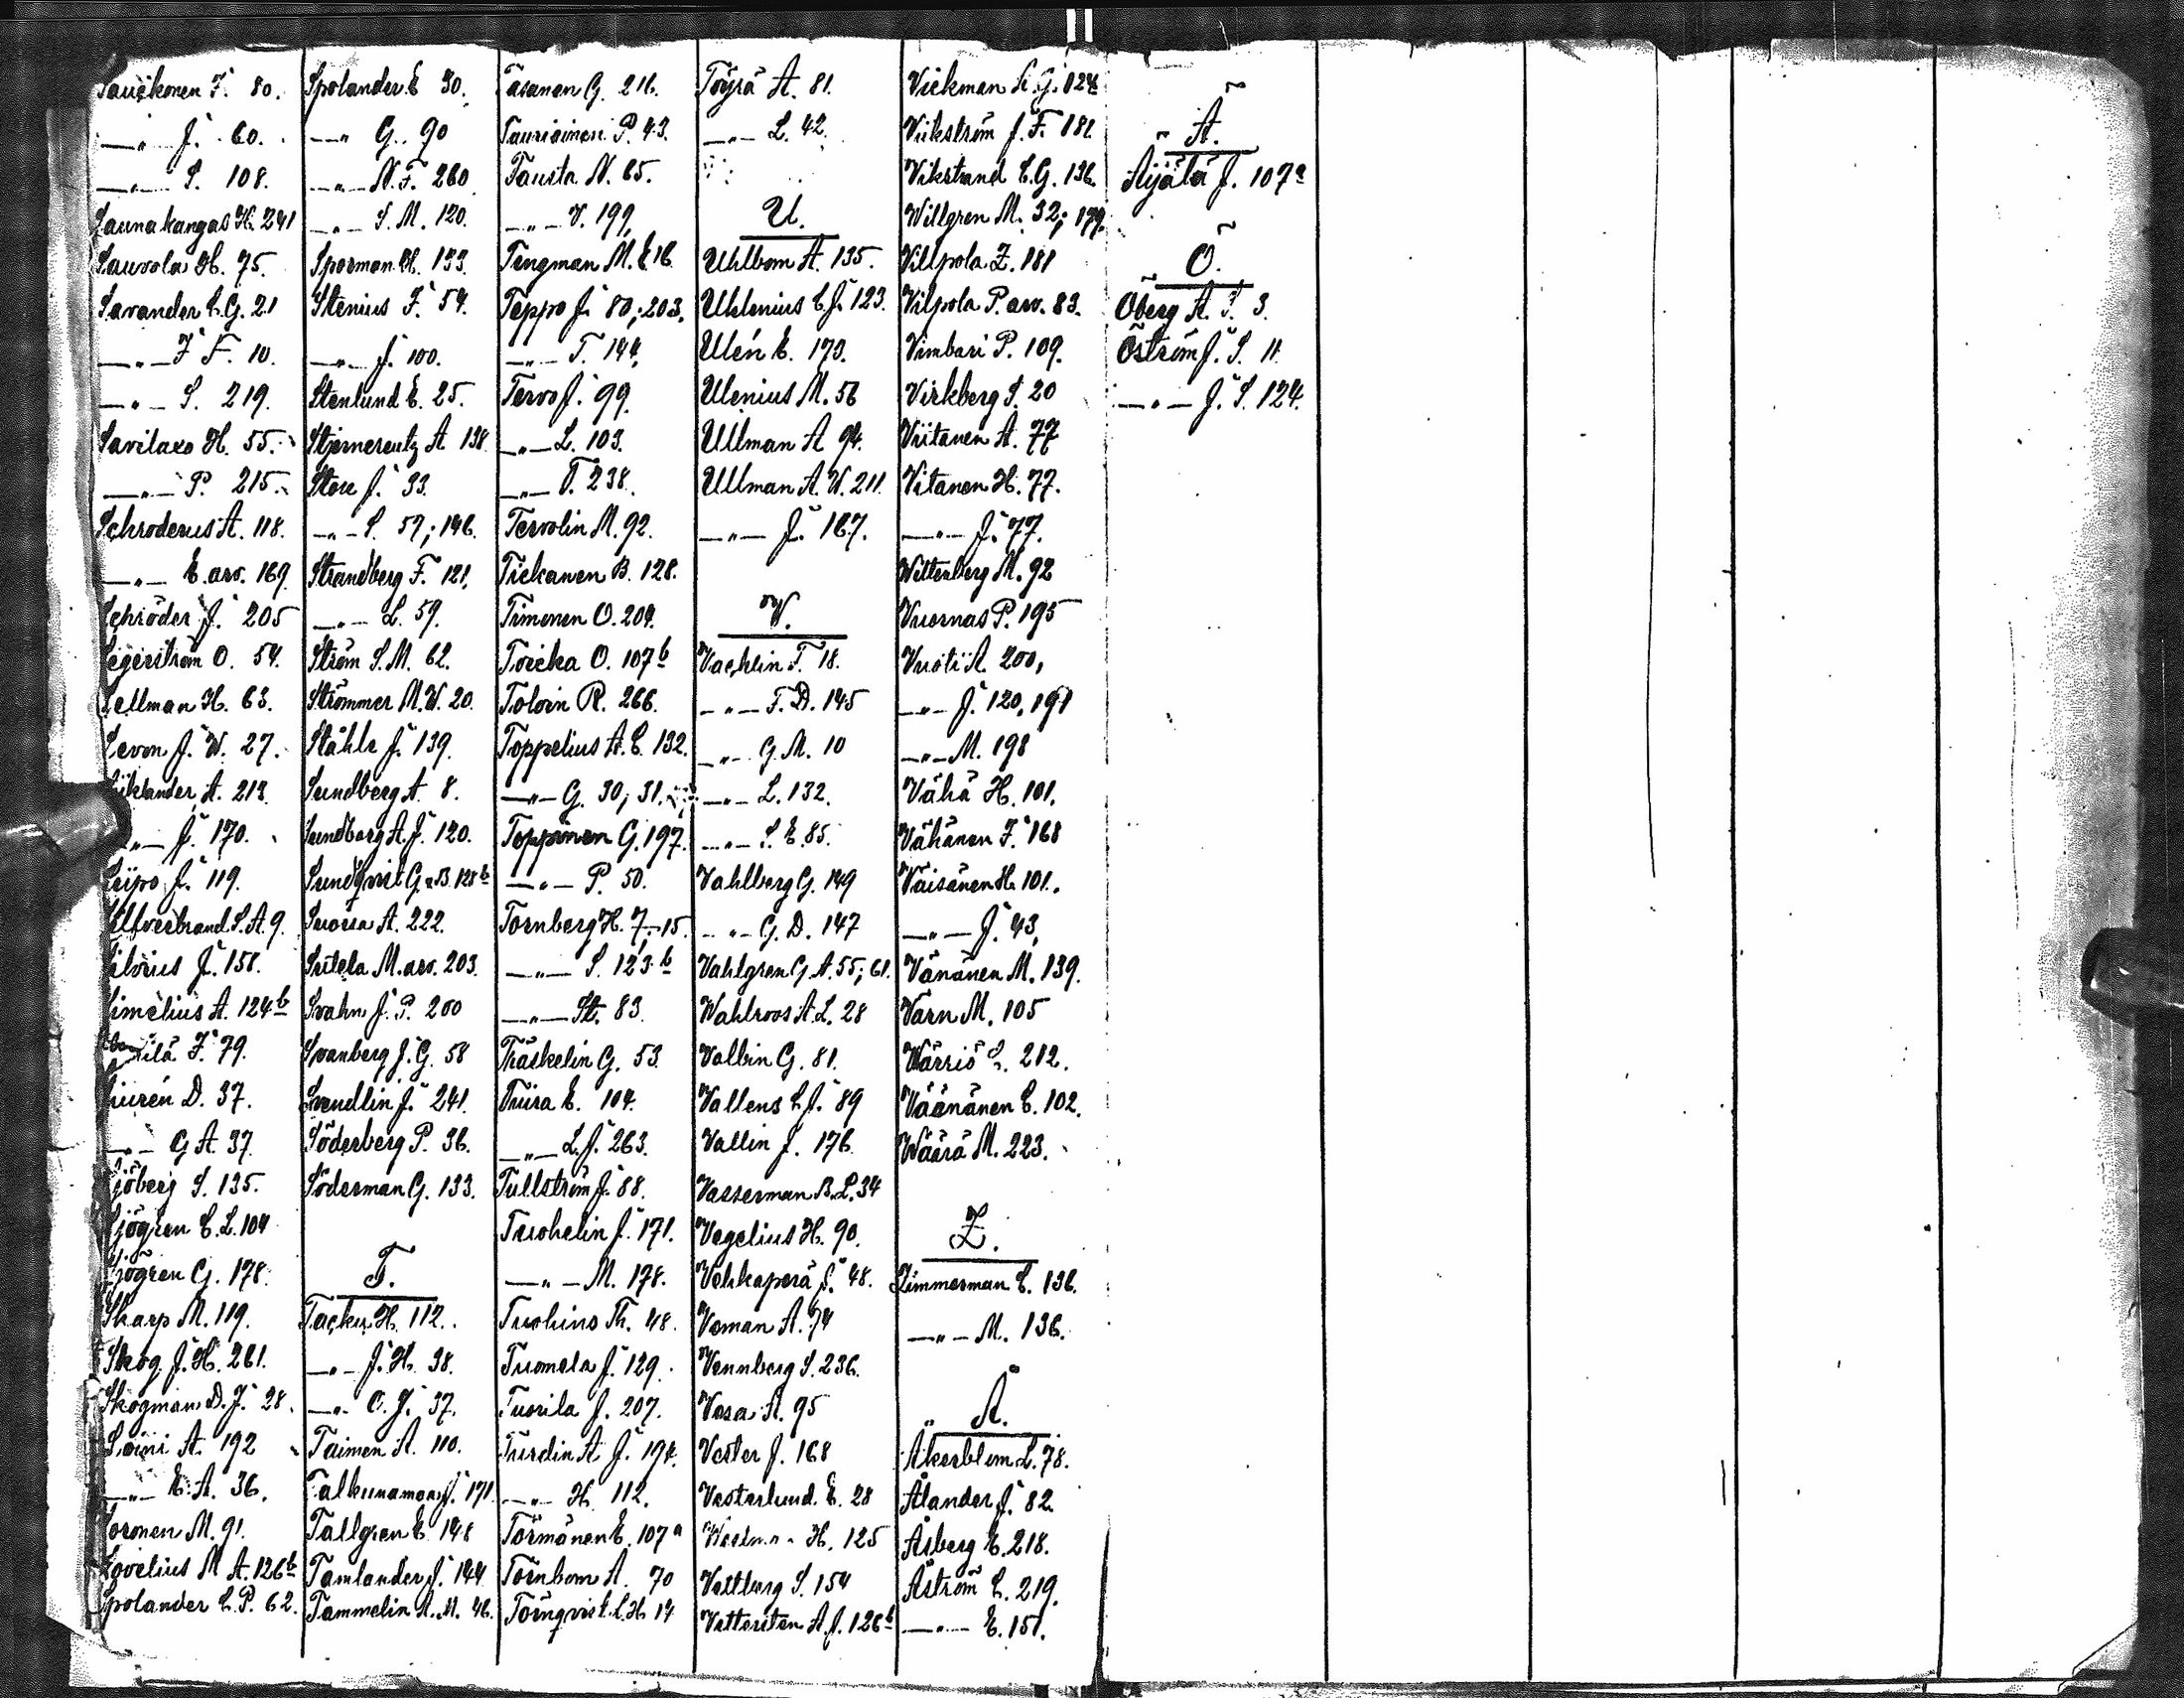 Sauckonen J. 80.
—„— J. 60.
—„— S. 108.
Saunakangas H. 241
Saurola H. 75.
Savander C. G. 21
—„— J F. 10.
—„— S. 219.
Savilaxo H. 55.
—„— P. 215.
Schroderus A. 118.
—„— E. arv. 169.
Schröder J. 205
Segerström O. 54.
Sellman H. 63.
Sevon J. W. 27.
Siklander A. 213.
—„— J. 170.
Siipo J. 119.
Silfverbrand S. A. 9.
Silvius J. 158.
Simelius A. 124 b
J. 79.
Siurén D. 37.
—„— G A. 37.
Sjöberg S. 135.
Sjögren C. L. 104
Sjögren G. 178.
Skarp M. 119.
Skog J. H. 261.
Skogman D. J. 28.
Soini A. 192
—„— E. A. 36.
Soronen M. 91.
Sovelius M A. 126 b
Spolander C. P. 62.
Spolander E 30.
—„— G. 90
—„— N. F. 260
—„— S. M. 120.
Sporman H. 133.
Stenius J. 54.
—„— J. 100.
Stenlund E. 25.
Stjerncreutz A 138
Store J. 33.
—„— S. 57; 146.
Strandberg F. 121.
—„— L. 59.
Ström S. M. 62.
Strömmer M. W. 20.
Ståhle J. 139.
Sundberg A. 8.
Sundberg A. J. 120.
Sundqvist G. B. 128 b
Suorsa A. 222.
Sutela M. arv. 203.
Svahn J. P. 200
Svanberg J. G. 58
Svendlin J. 241.
Söderberg P. 36.
Söderman G. 133.
T.
Tacku H. 112.
—„— J. H. 38.
—„— O. J. 37.
Taimen A. 110.
Talkunamau J. 171
Tallgren E. 148
Tamlander J. 144
Tammelin A. M. 46.
Tasanen G. 216.
Tauriainen P. 43.
Tausta N. 65.
—„— V. 199.
Tengman M. E. 16.
Teppo J. 80; 203.
—„— T. 144.
Tervo J. 99.
—„— L. 103.
—„— T. 238.
Tervolin M. 92.
Tickanen B. 128.
Timonen O. 204.
Toicka O. 107 b
Toloin R. 266.
Toppelius A. C. 132.
—„— G. 30; 31.
Toppinen G. 197.
—„— P. 50.
Tornberg H. 7, 15.
—„— S. 123 b
—„— St. 83.
Träskelin G. 53.
Triira E. 104.
—„— L. J. 263.
Tullström J. 88.
Tuohelin J. 171.
—„— M. 178.
Tuohino Th. 48.
Tuomela J. 129.
Tuorila J. 207.
Turdin A. J. 194.
—„— H. 112.
Törmänen E. 107 a
Törnbom A. 70
Törnqvist C. H 14
Töyrä A. 81.
—„— L. 42.
U.
Uhlbom A. 135.
Uhlenius C. J. 123.
Ulén E. 173.
Ulenius M. 56
Ullman A 94.
Ullman A. W. 211.
—„— J. 167.
V.
Vachlin F. 18.
—„— F. D. 145
—„— G. M. 10
—„— L. 132.
—„— S. E. 85.
Vahlberg G. 149
—„— G. D. 147
Vahlgren G. A. 55; 61.
Wahlroos A. L. 28
Valbin G. 81.
Vallens C. J. 89
Vallin J. 176
Vasserman B. L. 34
Vegelius H. 90.
Vehkaperä J. 48.
Veman A. 74
Vennberg S. 236.
Vesa A. 95
Vester J. 168
Vesterlund E. 28
H. 125
Vettberg S. 154
Vettersten A. J. 126 b
Vickman S. G. 124
Vickström J. F. 181
Vikstrand C. G. 136.
Willgren M. 32; 179.
Villpola Z. 181
Vilpola P. arv. 83.
Vimbari P. 109.
Virkberg S. 20
Viitanen A. 77
Vitanen H. 77.
—„— J. 77.
Wittenberg M. 92
Vuornas P. 195
Vuoti A. 200,
—„— J. 120, 191
—„— M. 198
Vähä H. 101.
Vähänen J. 168
Väisänen H. 101.
—„— J. 43.
Vänänen M. 139.
Värn M. 105
Wärriö 212.
Väänänen C. 102.
Wäärä M. 223.
Z.
Zimmerman C. 136.
—„— M. 136.
Å.
Åkerblom L. 78.
Ålander J. 82.
Åsberg E. 218.
Åström C. 219.
—„— E. 151.
Ä.
Äijälä J. 107 a
Ö.
Öberg A. J. 3.
Öström J. S. 11.
—„— J. S. 124.